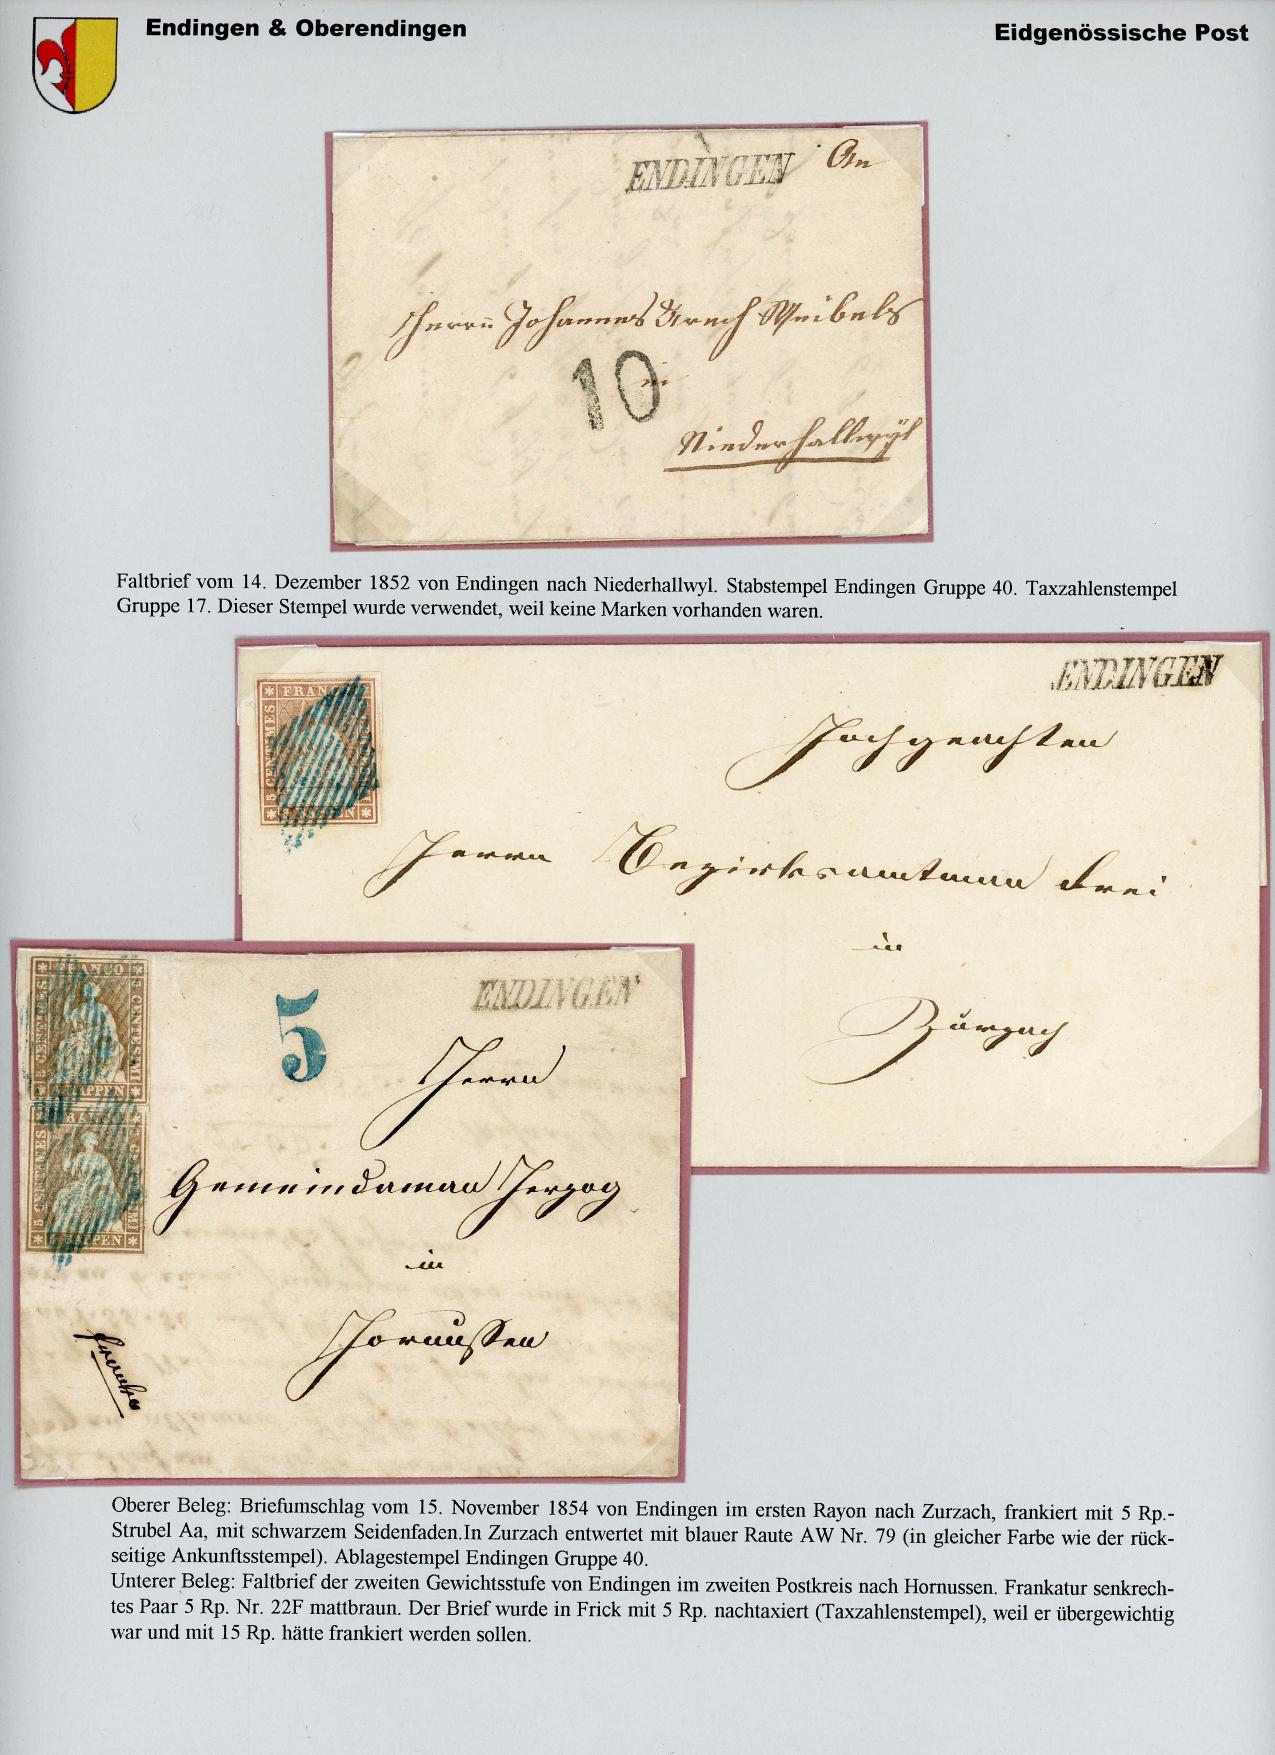 Endingen & Oberendingen
Eidgenössische Post
ENDINGEN
An
Herrn Johannes Urech Weibels
10
in
Niederhallwyl
Faltbrief vom 14. Dezember 1852 von Endingen nach Niederhallwyl. Stabstempel Endingen Gruppe 40. Taxzahlenstempel
Gruppe 17. Dieser Stempel wurde verwendet, weil keine Marken vorhanden waren.
ENDINGEN
5 CENTIMES
Hochgeachten
Herrn Bezirksamtman Frei
in
Zurzach
FRANCO
5 CENTIMES
5 CENTESIMI
RAPPEN
5 CENTIMES
5
ENDINGEN
Herrn
Gemeindaman Herzog
in
Hornussen
franko
Oberer Beleg: Briefumschlag vom 15. November 1854 von Endingen im ersten Rayon nach Zurzach, frankiert mit 5 Rp.-
Strubel Aa, mit schwarzem Seidenfaden.In Zurzach entwertet mit blauer Raute AW Nr. 79 (in gleicher Farbe wie der rück-
seitige Ankunftsstempel). Ablagestempel Endingen Gruppe 40.
Unterer Beleg: Faltbrief der zweiten Gewichtsstufe von Endingen im zweiten Postkreis nach Hornussen. Frankatur senkrech-
tes Paar 5 Rp. Nr. 22F mattbraun. Der Brief wurde in Frick mit 5 Rp. nachtaxiert (Taxzahlenstempel), weil er übergewichtig
war und mit 15 Rp. hätte frankiert werden sollen.